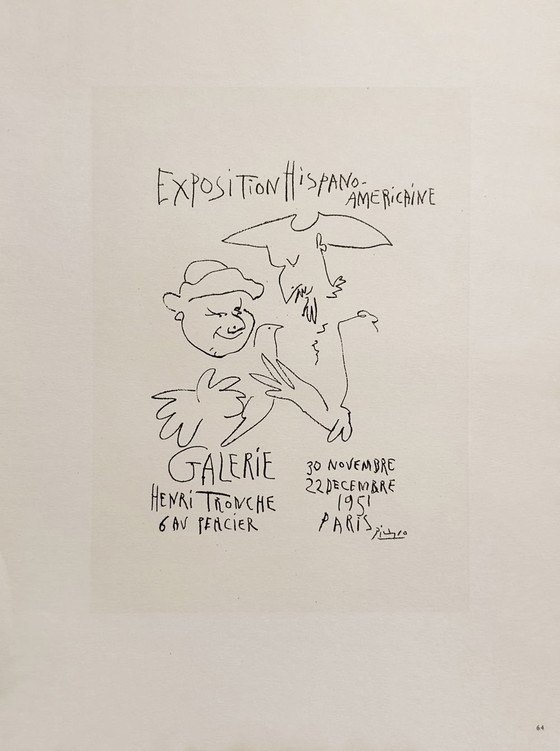 EXPOSITION HISPANO-
AMERICAINE
GALERIE
HENRI TRONCHE
6 AV PERCIER
30 NOVEMBRE
22 DECEMBRE
1951
PARIS
Picasso
64